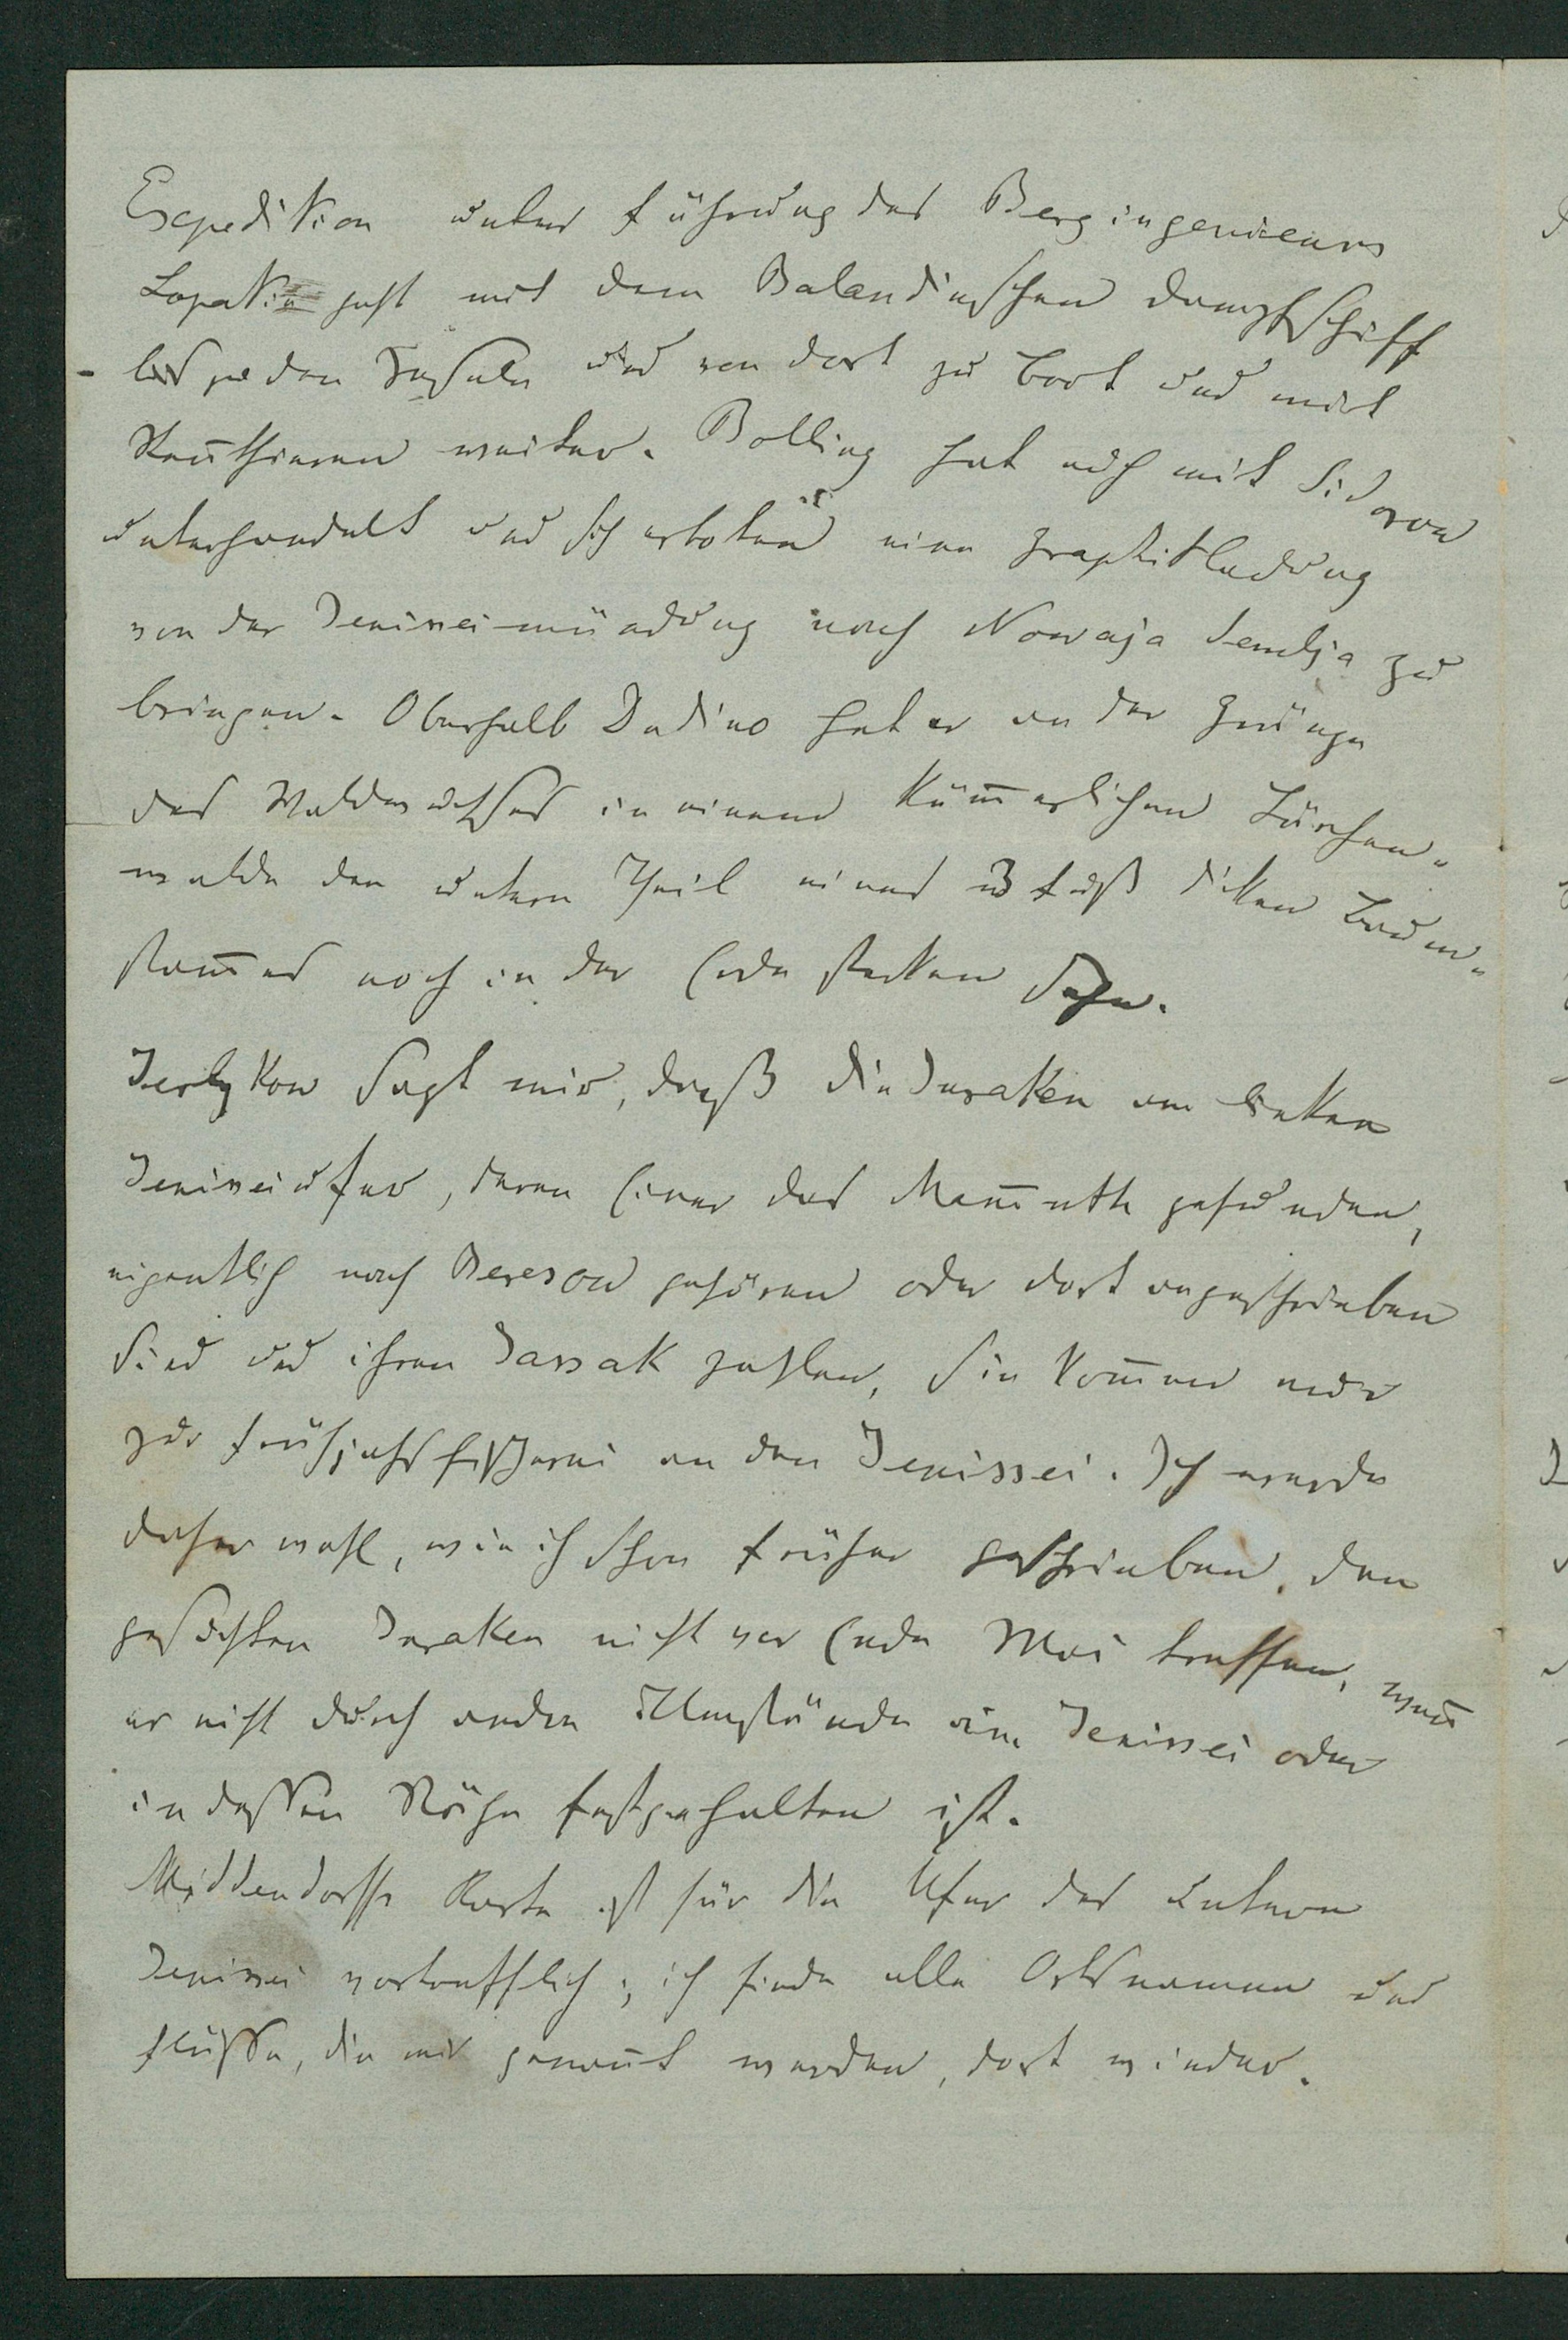 Expedition unter Führung des Bergingenieurs
Lopatin geht mit dem Balandinschen Dampfschiff
bis zu den Inseln und von dort zu Boot und mit
Reñthieren weiter. Bolling hat auch mit Sidorow
unterhandelt und sich erboten eine Graphitladung
von der Jenisseimündung nach Nowaja Semlja zu
bringen. Oberhalb Dudino hat er an der Gränze
des Waldwuchses in einem küm̄erlichen Lärchen-
walde den untern Theil eines 3 Fuß dicken Baum-
stam̄es noch in der Erde stecken sehn.
daß die Juraken am linken
Jenisseiufer, deren Einer das Mam̄uth gefunden,
eigentlich nach Beresow gehören oder dort angeschrieben
sind und ihren Jassak zahlen, sie kom̄en nur
zur Frühjahrsfischerei an den Jenissei. Ich werde
daher wohl, wie ich schon früher geschrieben, den
gesuchten Juraken nicht vor Ende Mai treffen, weñ
er nicht durch andre Umstände am Jenissei oder
in dessen Nähe festgehalten ist.
Middendorffs Karte ist für die Ufer des untern
Jenissei vortrefflich; ich finde alle Ortsnamen und
Flüsse, die mir genañt werden, dort wieder.